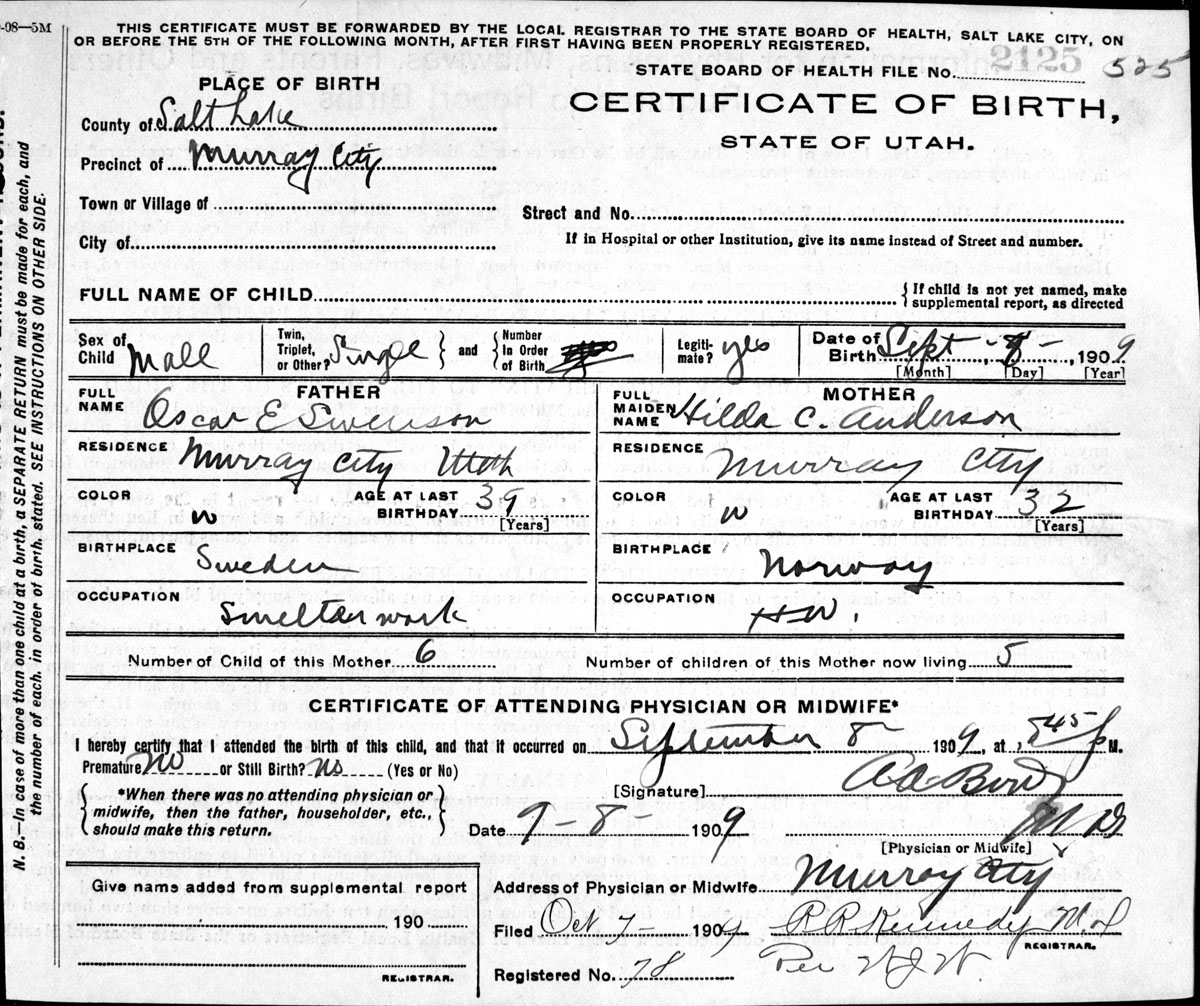 -08—5M
THIS CERTIFICATE MUST BE FORWARDED BY THE LOCAL REGISTRAR TO THE STATE BOARD OF HEALTH, SALT LAKE CITY, ON
OR BEFORE THE 5TH OF THE FOLLOWING MONTH, AFTER FIRST HAVING BEEN PROPERLY REGISTERED.
STATE BOARD OF HEALTH FILE No. 2125 525
PLACE OF BIRTH
CERTIFICATE OF BIRTH,
STATE OF UTAH.
County of Salt Lake
Precinct of Murray City
Town or Village of
Street and No.
City of
If in Hospital or other Institution, give its name instead of Street and number.
FULL NAME OF CHILD
{If child is not yet named, make
supplemental report, as directed
Sex of Child Male
Twin, Triplet, or Other? Single } and { Number In Order of Birth
Legiti-mate? yes
Date of Birth Sept - 8 - , 1909
[Month] [Day] [Year]
FATHER
FULL NAME Oscar E Swenson
MOTHER
FULL MAIDEN NAME Hilda C. Anderson
RESIDENCE Murray City Utah
RESIDENCE Murray City
COLOR W AGE AT LAST BIRTHDAY 39 [Years]
COLOR W AGE AT LAST BIRTHDAY 32 [Years]
BIRTHPLACE Sweden
BIRTHPLACE Norway
OCCUPATION Smelter work
OCCUPATION H.W.
Number of Child of this Mother 6
Number of children of this Mother now living 5
CERTIFICATE OF ATTENDING PHYSICIAN OR MIDWIFE*
I hereby certify that I attended the birth of this child, and that it occurred on September 8 1909, at 845 P M.
Premature No or Still Birth? No (Yes or No)
{*When there was no attending physician or
midwife, then the father, householder, etc.,
should make this return.}
[Signature]
Date 9-8- 1909 M D
[Physician or Midwife]
Give name added from supplemental report
190
REGISTRAR.
Address of Physician or Midwife Murray City
Filed Oct 7- 1909 R R Kennedy M.D
REGISTRAR.
Registered No. 78 Per W J W
N. B.—In case of more than one child at a birth, a SEPARATE RETURN must be made for each, and
the number of each, in order of birth, stated. SEE INSTRUCTIONS ON OTHER SIDE.